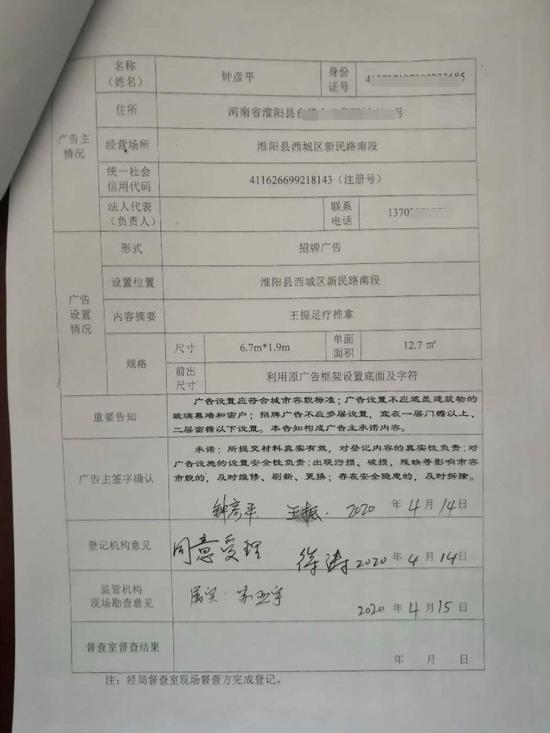 名称
（姓名）
钟彦平
身份
证号
住所
河南省淮阳县
号
广告主
情况
经营场所
淮阳县西城区新民路南段
统一社会
信用代码
411626699218143（注册号）
法人代表
（负责人）
联系
电话
1370
广告
设置
情况
形式
招牌广告
设置位置
淮阳县西城区新民路南段
内容摘要
王振足疗推拿
规格
尺寸
6.7m*1.9m
单面
面积
12.7㎡
前出
尺寸
利用原广告框架设置底面及字符
重要告知
广告设置应符合城市容貌标准；广告设置不应遮盖建筑物的
玻璃幕墙和窗户；招牌广告不应多层设置，宜在一层门檐以上、
二层窗檐以下设置。本告知构成广告主承诺内容。
广告主签字确认
承诺：所提交材料真实有效，对登记内容的真实性负责；对
广告设施的设置安全性负责；出现污损、破损、残缺等影响市容
市貌的，及时维修、刷新、更换；存在安全隐患的，及时拆除。
钟彦平 王振 2020年4月14日
登记机构意见
同意受理 徐涛 2020年4月14日
监管机构
现场勘查意见
属实
2020年4月15日
督查室督查结果
年 月 日
注：经局督查室现场督查方完成登记。